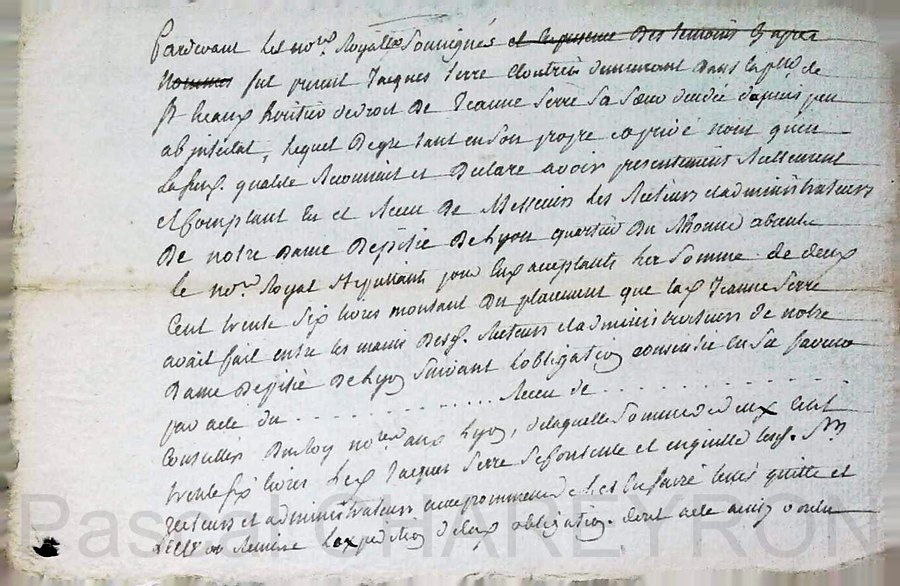 Pardevant les no.res Royaux Soussignés et en presence des temoins cy apres
Nommés fut present Jacques Serre demeurant dans la p.sse de
St heritier de droit de Jeanne Serre Sa Sœur decedée depuis peu
ab intestat, lequel Degré tant en son propre et privé nom qu'en
qualité Reconnoit et Declare avoir presentement Réellement
et Comptant Eu et Receu De Messieurs Les Recteurs et administrateurs
De notre Dame De pitié De Lyon quartier Du Rhone absents
le no.re Royal Stipulants pour Eux acceptants la Somme de deux
Cent trente Six livres montant Du placement que lad. Jeanne Serre
avait fait entre les mains Desd. Recteurs et administrateurs De notre
Dame De pitié De Lyon Suivant l'obligation consentie en Sa faveur
par acte du . . . . . . . . . . . . Receu de . . . . . . . . . . . .
Conseiller Du Roy no.re aud. Lyon, de laquelle Somme de deux Cent
trente Six livres Led. Jacques Serre Se Contente et en quitte lesd. Srs
recteurs et administrateurs avec promesse de Les en faire tenir quitte et
Remise L'expedition de lad. obligation. dont acte ainsy voulu
Pascal CHAREYRON